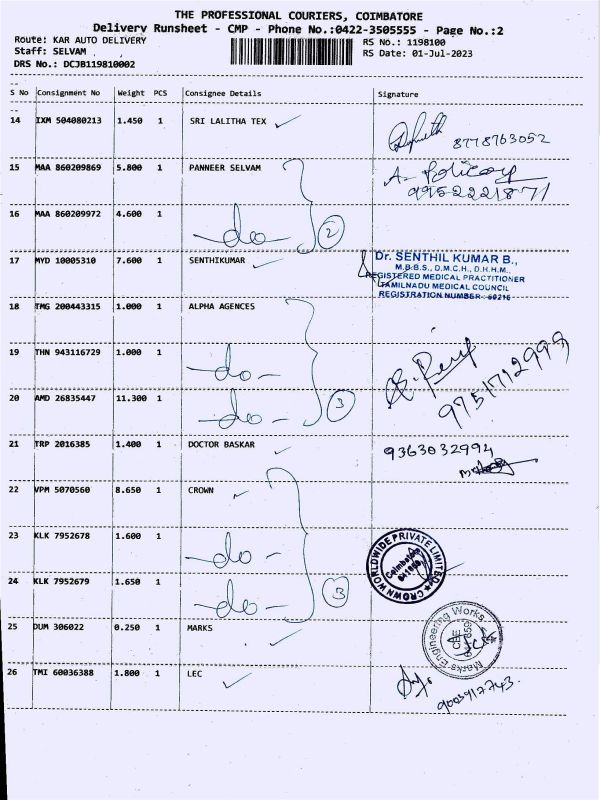 THE PROFESSIONAL COURIERS, COIMBATORE
Delivery Runsheet - CMP - Phone No.:0422-3505555 - Page No.:2
Route: KAR AUTO DELIVERY
RS No.: 1198100
Staff: SELVAM
RS Date: 01-Jul-2023
DRS No.: DCJB119810002
S No Consignment No Weight PCS Consignee Details Signature
14 IXM 504080213 1.450 1 SRI LALITHA TEX
8778763052
15 MAA 860209869 5.800 1 PANNEER SELVAM
9952221871
16 MAA 860209972 4.600 1 -do- 2
17 MYD 10005310 7.600 1 SENTHIKUMAR
Dr. SENTHIL KUMAR B.,
M.B.B.S., D.M.C.H., D.H.H.M.,
REGISTERED MEDICAL PRACTITIONER
TAMILNADU MEDICAL COUNCIL
REGISTRATION NUMBER: 60216
18 TMG 200443315 1.000 1 ALPHA AGENCES
19 THN 943116729 1.000 1 -do-
9751712999
20 AMD 26835447 11.300 1 -do- 3
21 TRP 2016385 1.400 1 DOCTOR BASKAR
9363032994
22 VPM 5070560 8.650 1 CROWN
23 KLK 7952678 1.600 1 -do-
CROWN WORLDWIDE PRIVATE LIMITED
Coimbatore
24 KLK 7952679 1.650 1 -do- 3
25 DUM 306022 0.250 1 MARKS
Marks Engineering Works
CBE
26 TMI 60036388 1.800 1 LEC
9003917743.